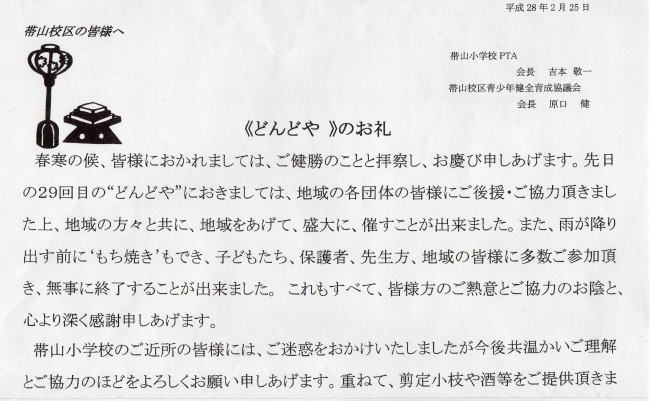 平成28年2月25日
帯山校区の皆様へ
帯山小学校PTA
会長 吉本 敬一
帯山校区青少年健全育成協議会
会長 原口 健
《どんどや 》のお礼
春寒の候、皆様におかれましては、ご健勝のことと拝察し、お慶び申しあげます。先日
の29回目の“どんどや”におきましては、地域の各団体の皆様にご後援・ご協力頂きまし
た上、地域の方々と共に、地域をあげて、盛大に、催すことが出来ました。また、雨が降り
出す前に‘もち焼き’もでき、子どもたち、保護者、先生方、地域の皆様に多数ご参加頂
き、無事に終了することが出来ました。 これもすべて、皆様方のご熱意とご協力のお陰と、
心より深く感謝申しあげます。
帯山小学校のご近所の皆様には、ご迷惑をおかけいたしましたが今後共温かいご理解
とご協力のほどをよろしくお願い申しあげます。重ねて、剪定小枝や酒等をご提供頂きま